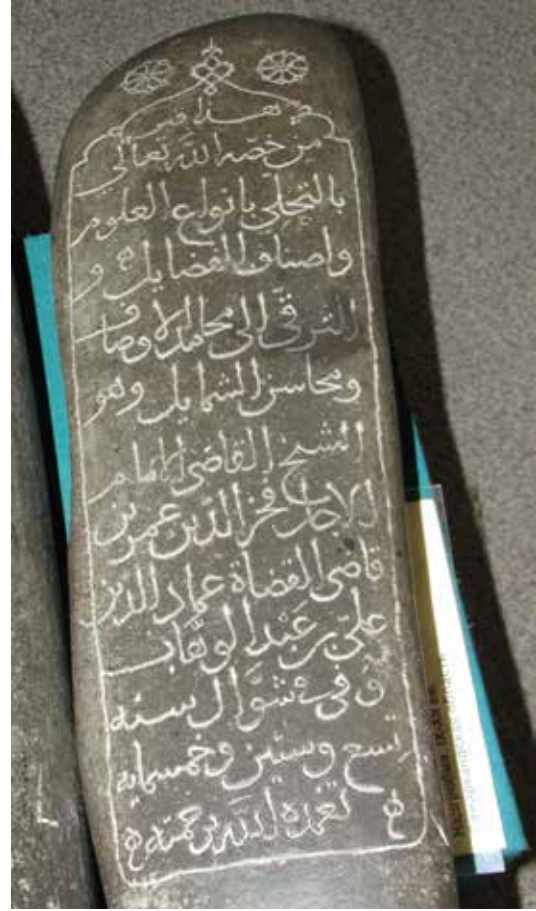 هذا قبر
من خصه الله تعالى
بالتحلى بانواع العلوم
واصناف الفضايل و
الترقى الى محامد الاوصاف
ومحاسن الشمايل وهو
الشيخ القاضى الامام
الاجل فخر الدين عمر بن
قاضى القضاة عماد الدين
على بن عبد الوهاب
توفى فى شوال سنه
تسع وستين وخمسمايه
تغمده الله برحمته